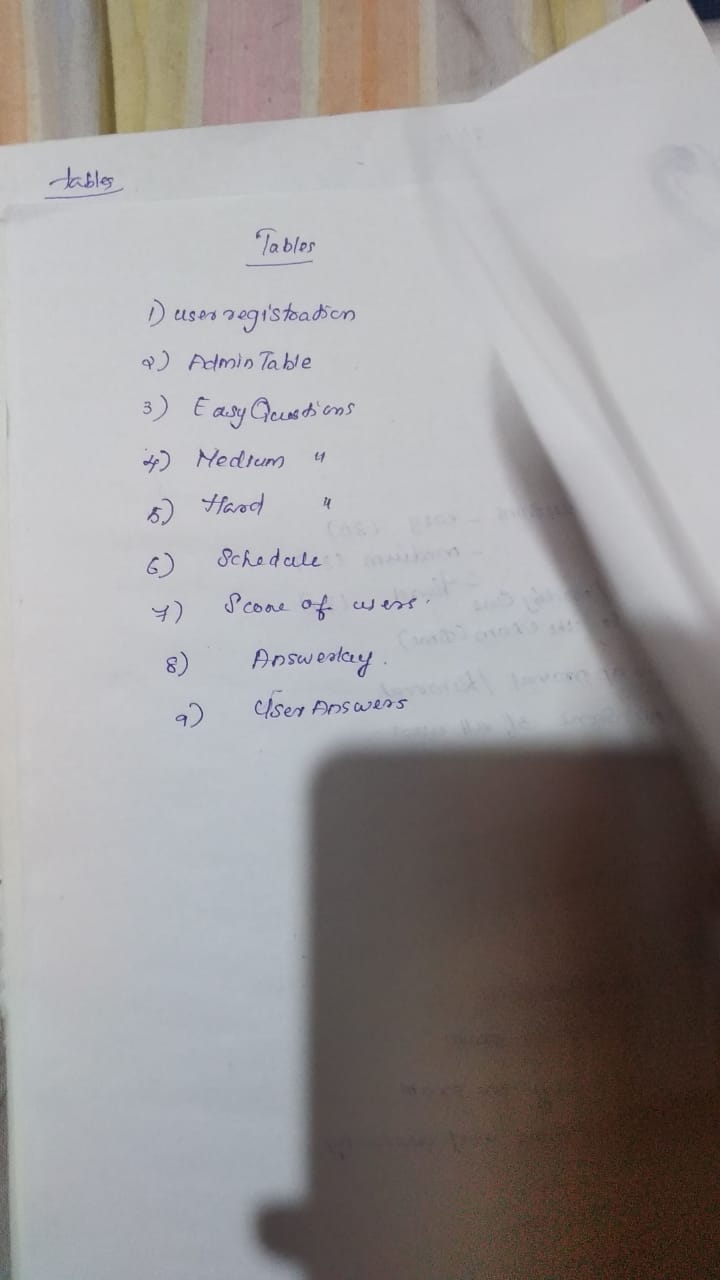 tables
Tables
1) user registration
2) Admin Table
3) Easy Questions
4) Medium "
5) Hard "
6) Schedule
7) Score of users.
8) Answerkey.
9) User Answers